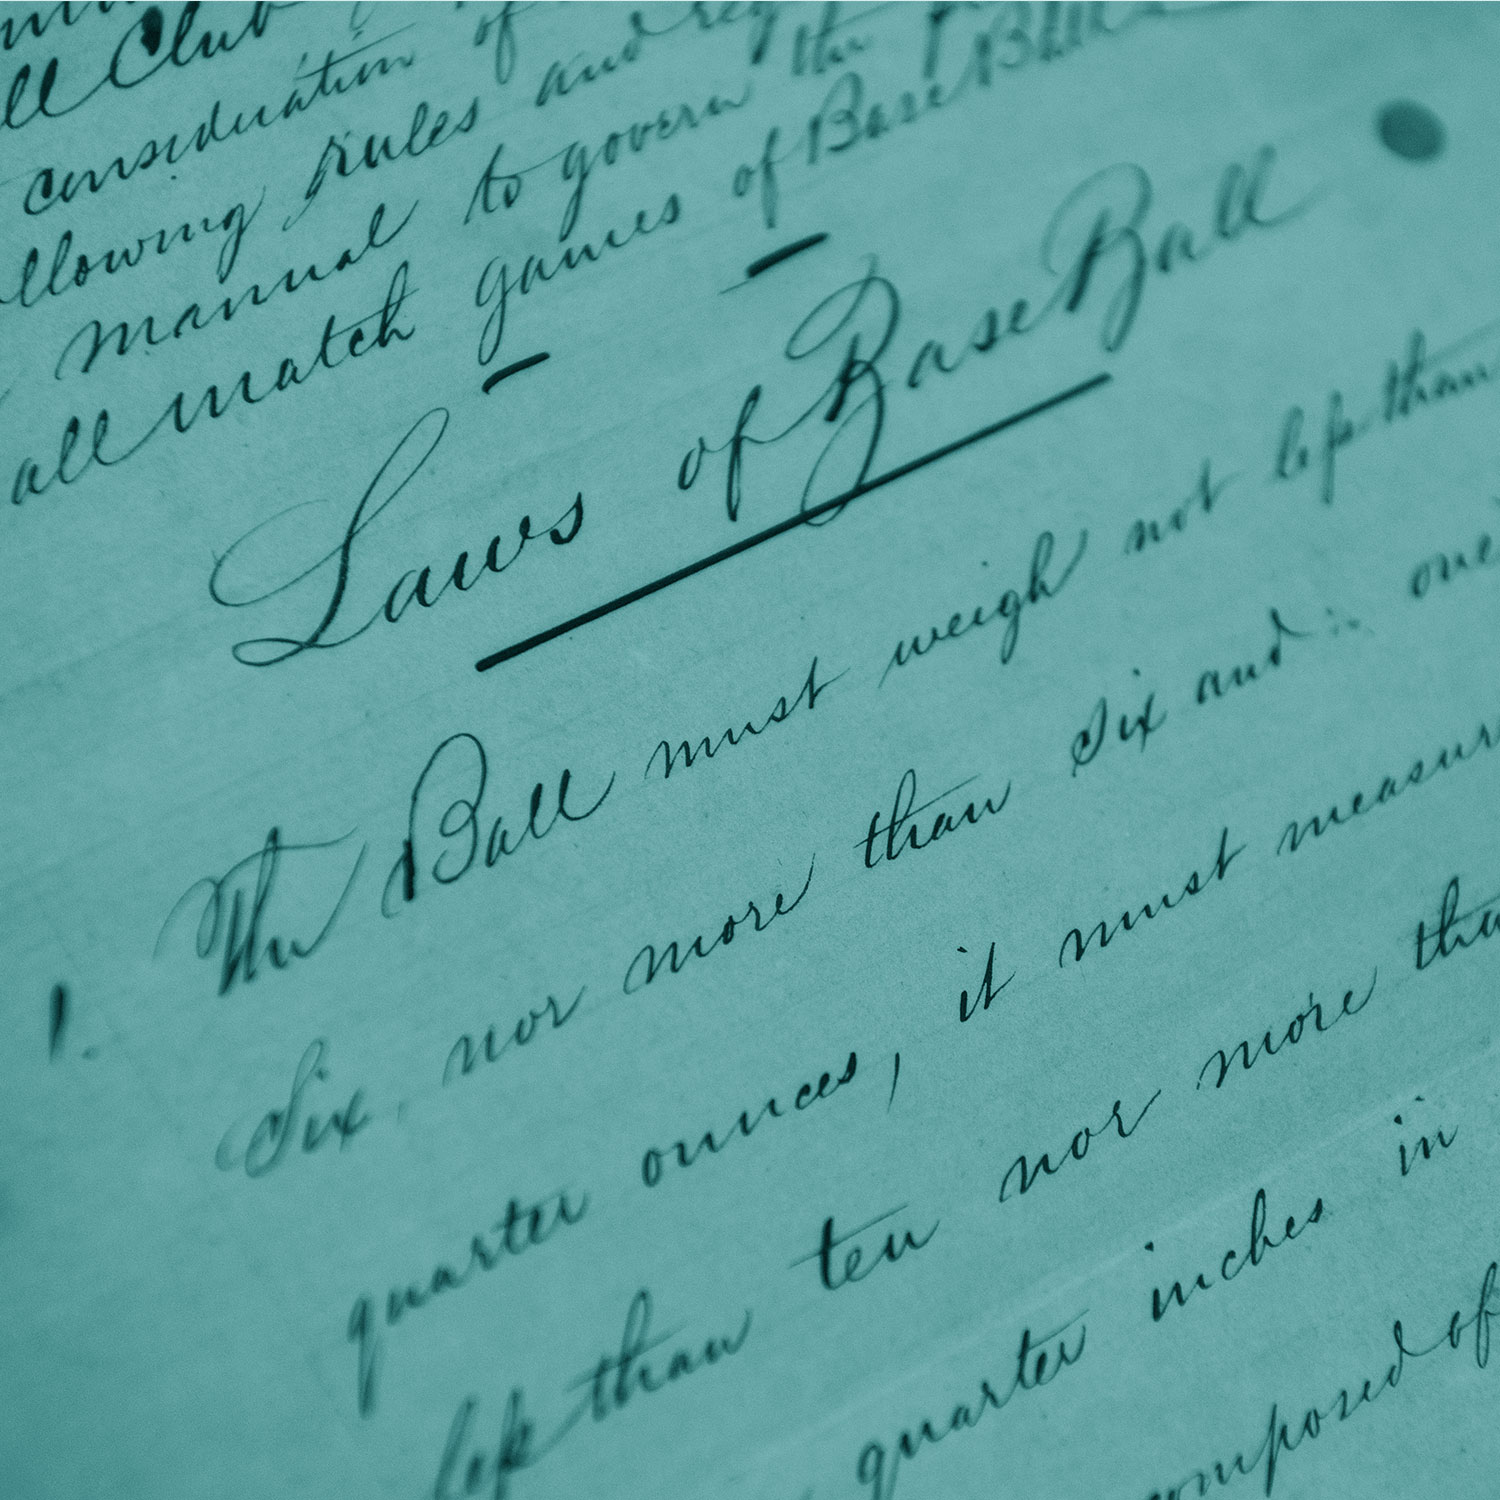 ll Club
consideration of
llowing rules and reg
manual to govern the
all match games of Base Ball
Laws of Base Ball
1. The Ball must weigh not less than
Six, nor more than Six and one
quarter ounces, it must measur
less than ten nor more tha
quarter inches in
omposed of